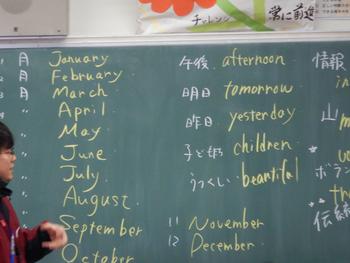 チャレンジ 常に前進
1月 January
2月 February
3月 March
4〃 April
〃 May
〃 June
〃 July
August
September
October
午後 afternoon
明日 tomorrow
昨日 yesterday
子ども children
うつくしい beautiful
11 November
12 December
情報
in
山 m
ボラン
伝統